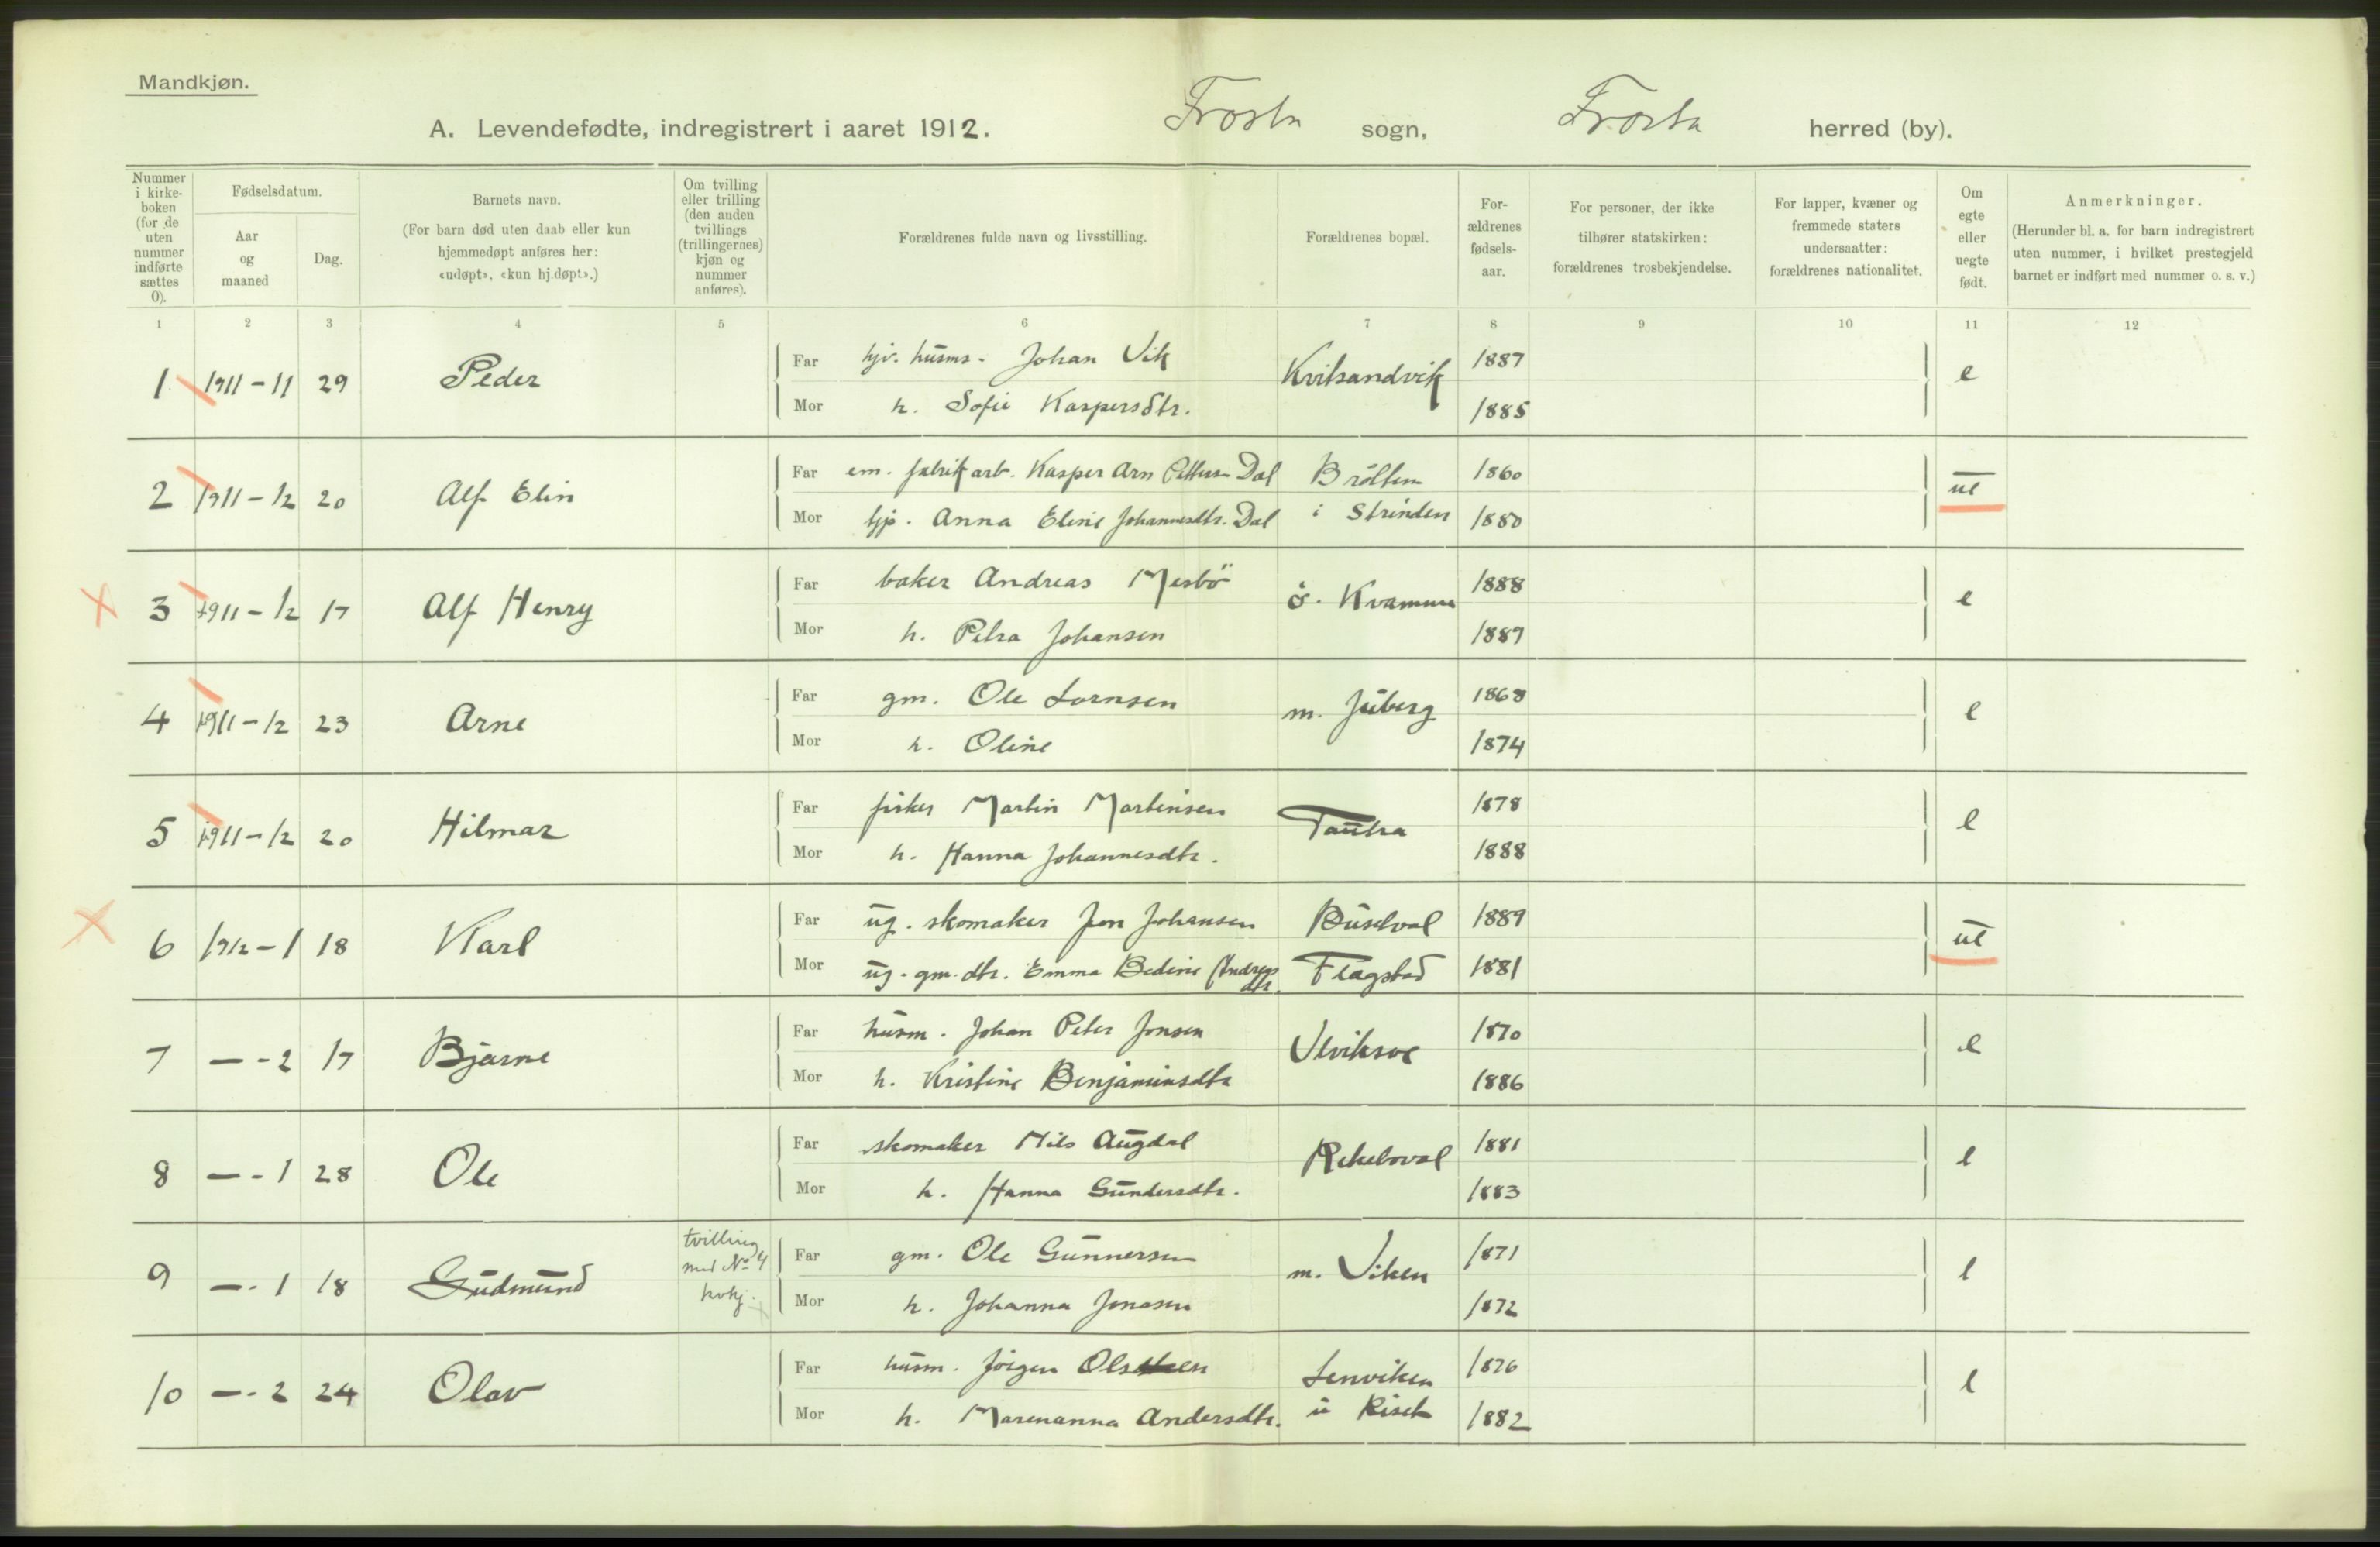 Mandkjøn.
A. Levendefødte, indregistrert i aaret 1912. Frosta sogn, Frosta herred (by).
Nummer i kirkeboken (for de uten nummer indførte sættes 0).
Fødselsdatum.
Aar og maaned
Dag.
Barnets navn.
(For barn død uten daab eller kun hjemmedøpt anføres her: «udøpt», «kun hj.døpt».)
Om tvilling eller trilling (den anden tvillings (trillingernes) kjøn og nummer anføres).
Forældrenes fulde navn og livsstilling.
Forældrenes bopæl.
Forældrenes fødselsaar.
For personer, der ikke tilhører statskirken: forældrenes trosbekjendelse.
For lapper, kvæner og fremmede staters undersaatter: forældrenes nationalitet.
Om egte eller uegte født.
Anmerkninger.
(Herunder bl. a. for barn indregistrert uten nummer, i hvilket prestegjeld barnet er indført med nummer o. s. v.)
1 2 3 4 5 6 7 8 9 10 11 12
1 1911-11 29 Peder Far hjv. husms. Johan Vik Kvilsandvik 1887 e
Mor h. Sofie Kaspersdtr. 1885
2 1911-12 20 Alf Elin Far em. fabrikarb. Kasper Arn Dal 1860 ue
Mor Anna Eline Johannesdtr. Dal i Strinden 1880
3 1911-12 17 Alf Henry Far baker Andreas Mesbö ö. Kvamme 1888 e
Mor h. Petra Johansen 1889
4 1911-12 23 Arne Far gm. Ole Lornsen m. Juberg 1868 e
Mor h. Oline 1874
5 1911-12 20 Hilmar Far fisker Martin Martinsen Tautra 1878 e
Mor h. Hanna Johannesdtr. 1888
6 1912-1 18 Karl Far ug. skomaker Jon Johansen 1889 ue
Mor ug. gm. dtr. Emma Bedine Andreasdtr. Flagstad 1881
7 — - 2 17 Bjarne Far husm. Johan Peter Jonsen 1870 e
Mor h. Kristine Benjaminsdtr 1886
8 — - 1 28 Ole Far skomaker Nils Augdal 1881 e
Mor h. Hanna Gundersdtr. 1883
9 — - 1 18 Gudmund tvilling med No 4 kvkj. Far gm. Ole Gunnersen m. Viken 1871 e
Mor h. Johanna Jonasen 1872
10 — - 2 24 Olav Far husm. Jörgen Olsen Lenviken 1876 e
Mor h. Marenanna Andersdtr. u Riset 1882